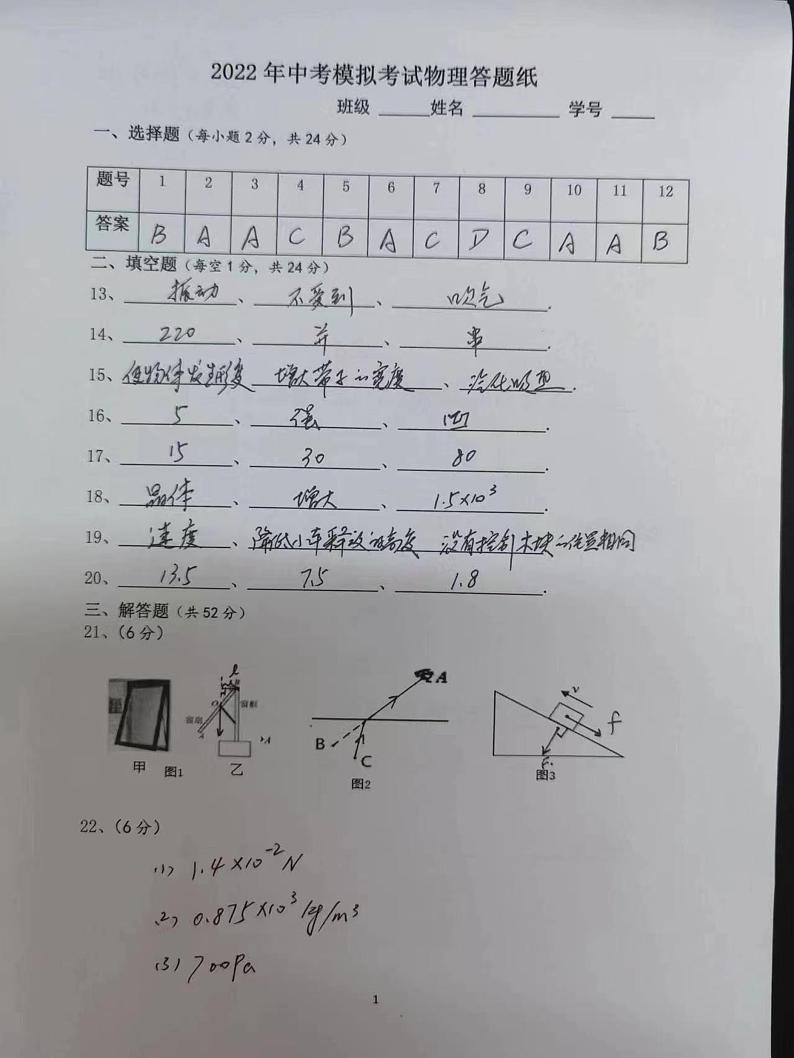 2022年中考模拟考试物理答题纸
班级 姓名 学号
一、选择题（每小题2分，共24分）
题号 1 2 3 4 5 6 7 8 9 10 11 12
答案 B A A C B A C D C A A B
二、填空题（每空1分，共24分）
13、 振动 、 不受到 、 吹气 .
14、 220 、 并 、 串 .
15、 使物体发生形变 增大带子的宽度 、 汽化吸热 .
16、 5 、 强 、 凹 .
17、 15 、 30 、 80 .
18、 晶体 、 增大 、 1.5×10³ .
19、 速度 、 降低小车释放的高度 没有控制木块的位置相同
20、 13.5 、 7.5 、 1.8 .
三、解答题（共52分）
21、（6分）
l
O
窗扇 窗框
A
A
甲 图1 乙
A
B
C
图2
v
f
图3
22、（6分）
(1) 1.4×10⁻²N
(2) 0.875×10³kg/m³
(3) 700Pa
1